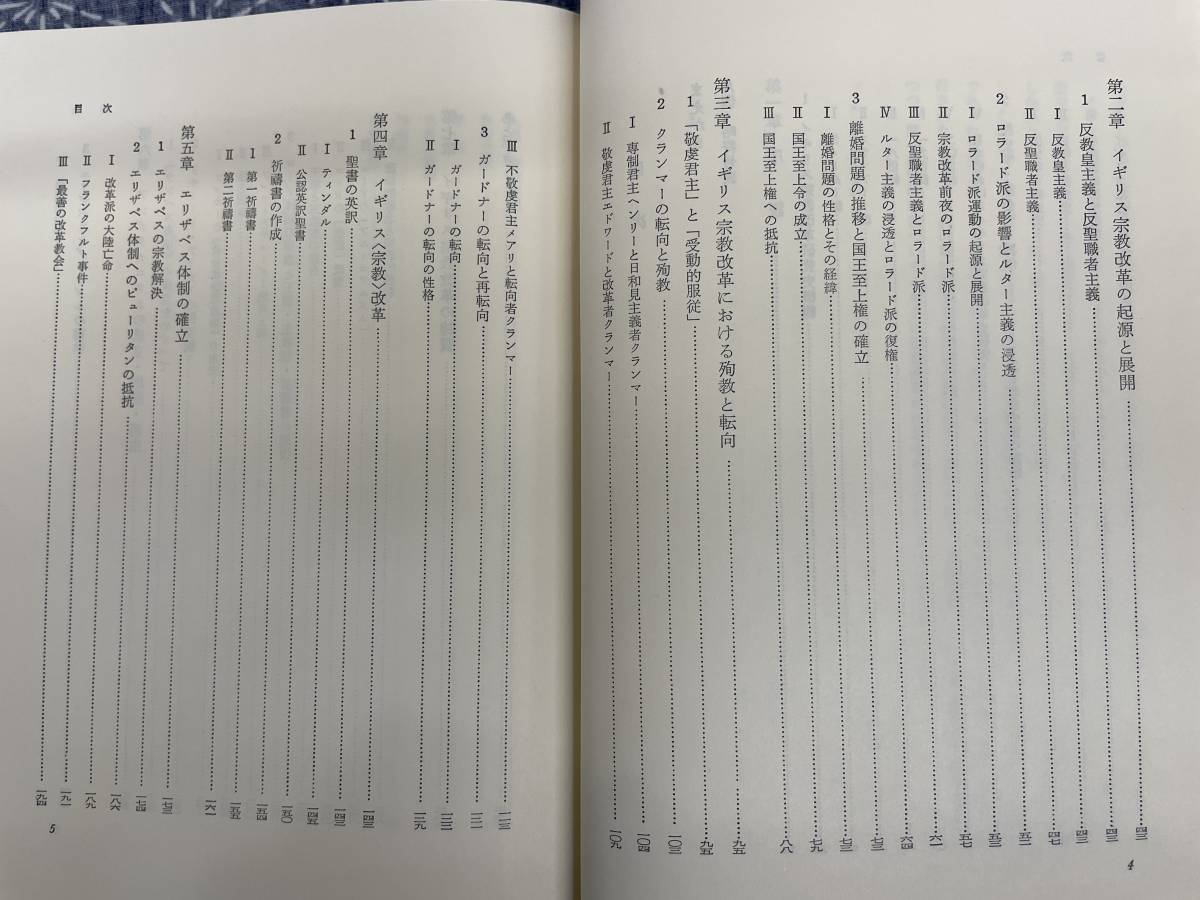 第二章 イギリス宗教改革の起源と展開……四三
1 反教皇主義と反聖職者主義……四三
Ⅰ 反教皇主義……四三
Ⅱ 反聖職者主義……四七
2 ロラード派の影響とルター主義の浸透……五二
Ⅰ ロラード派運動の起源と展開……五三
Ⅱ 宗教改革前夜のロラード派……五七
Ⅲ 反聖職者主義とロラード派……六一
Ⅳ ルター主義の浸透とロラード派の復権……六四
3 離婚問題の推移と国王至上権の確立……七三
Ⅰ 離婚問題の性格とその経緯……七三
Ⅱ 国王至上令の成立……七九
Ⅲ 国王至上権への抵抗……八八
第三章 イギリス宗教改革における殉教と転向……九五
1 「敬虔君主」と「受動的服従」……九五
2 クランマーの転向と殉教……一〇三
Ⅰ 専制君主ヘンリーと日和見主義者クランマー……一〇四
Ⅱ 敬虔君主エドワードと改革者クランマー……一〇九
4
Ⅲ 不敬虔君主メアリと転向者クランマー……一一三
3 ガードナーの転向と再転向……一二一
Ⅰ ガードナーの転向……一二二
Ⅱ ガードナーの転向の性格……一二九
第四章 イギリス〈宗教〉改革……一四三
1 聖書の英訳……一四三
Ⅰ ティンダル……一四五
Ⅱ 公認英訳聖書……一五〇
2 祈禱書の作成……一五四
Ⅰ 第一祈禱書……一五五
Ⅱ 第二祈禱書……一六一
第五章 エリザベス体制の確立……一七三
1 エリザベスの宗教解決……一七四
2 エリザベス体制へのピューリタンの抵抗……一八六
Ⅰ 改革派の大陸亡命……一八九
Ⅱ フランクフルト事件……一九一
Ⅲ 「最善の改革教会」……一九四
目 次
5